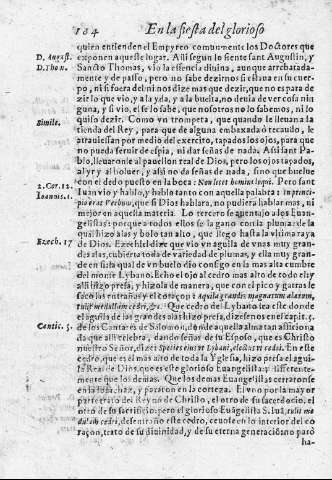 184 En la fiesta del glorioso
quien entienden el Empyreo comunmente los Doctores que
D. August. exponen aqueste lugar. Assi segun lo siente sant Augustin, y
D. Thom. Sancto Thomas, vio la essencia diuina, aunque arrebatada-
mente y de passo, pero no sabe dezirnos si estaua en su cuer-
po, ni si fuera del ni nos dize mas que dezir, que no es para de
zir lo que vio, y a la yda, y a la buelta, no deuia de ver cosa nin
guna, y si vio, el se lo sabe, que nosotros no lo sabemos, ni lo
Simile. quiso dezir. Como vn trompeta, que quando le lleuan a la
tienda del Rey, para que de alguna embaxada o recaudo, le
atrauiessan por medio del exercito, tapados los ojos, para que
no pueda seruir de espia, ni dar señas de nada. Assi sant Pa-
blo, lleuaronle al pauellon real de Dios, pero los ojos tapados,
al yr y al boluer, y assi no da señas de nada, sino que buelue
2. Cor. 12. con el dedo puesto en la boca: Non licet homini loqui. Pero sant
Ioannis. 1. Iuan vio y hablo, y hablo tanto con aquella palabra: In princi-
pio erat Verbum, que si Dios hablara, no pudiera hablar mas, ni
mejor en aquella materia. Lo tercero se auentajo a los Euan-
gelistas: porque a todos ellos se la gano con la pluma, de la
qual hizo alas y bolo tan alto, que llego hasta la vltima raya
Ezech. 17 de Dios. Ezechiel dize que vio vn aguila de vnas muy gran-
des alas, cubierta toda de variedad de plumas, y ella muy gran
de en si, la qual de vn buelo dio consigo en la mas alta cumbre
del monte Lybano. Echo el ojo al cedro mas alto de todo el, y
alli hizo presa, y hizola de manera, que con el pico y garras le
saco las entrañas y el coraçon: Aquila grandis magnarum alarum,
tulit medullam cedri, &c. Que cedro del Lybano sea este donde
el aguila de las grandes alas hizo presa, dizese nos en el capit. 5.
Cantic. 5. de los Cantares de Salomon, donde aquella alma tan aficiona
da que alli celebra, dando señas de su Esposo, que es Christo
nuestro Señor, dize: Species eius vt Lybani, electus vt cedri. En este
cedro, que es el mas alto de toda la Yglesia, hizo presa el agui-
la Real de Dios, que es este glorioso Euangelista: y differente-
mente que los demas. Que los demas Euangelistas cerraronse
en la haz, y pararon en la corteza. El vno por la mayor
parte trato del Reyno de Christo, el otro de su sacerdocio, el
otro de su sacrificio: pero el glorioso Euãgelista S. Iuã, tulit me
dullam cedri, desentraño este cedro, ceuose en lo interior del co
raçon, trato de su diuinidad, y de su eterna generacion: no paro
ha-